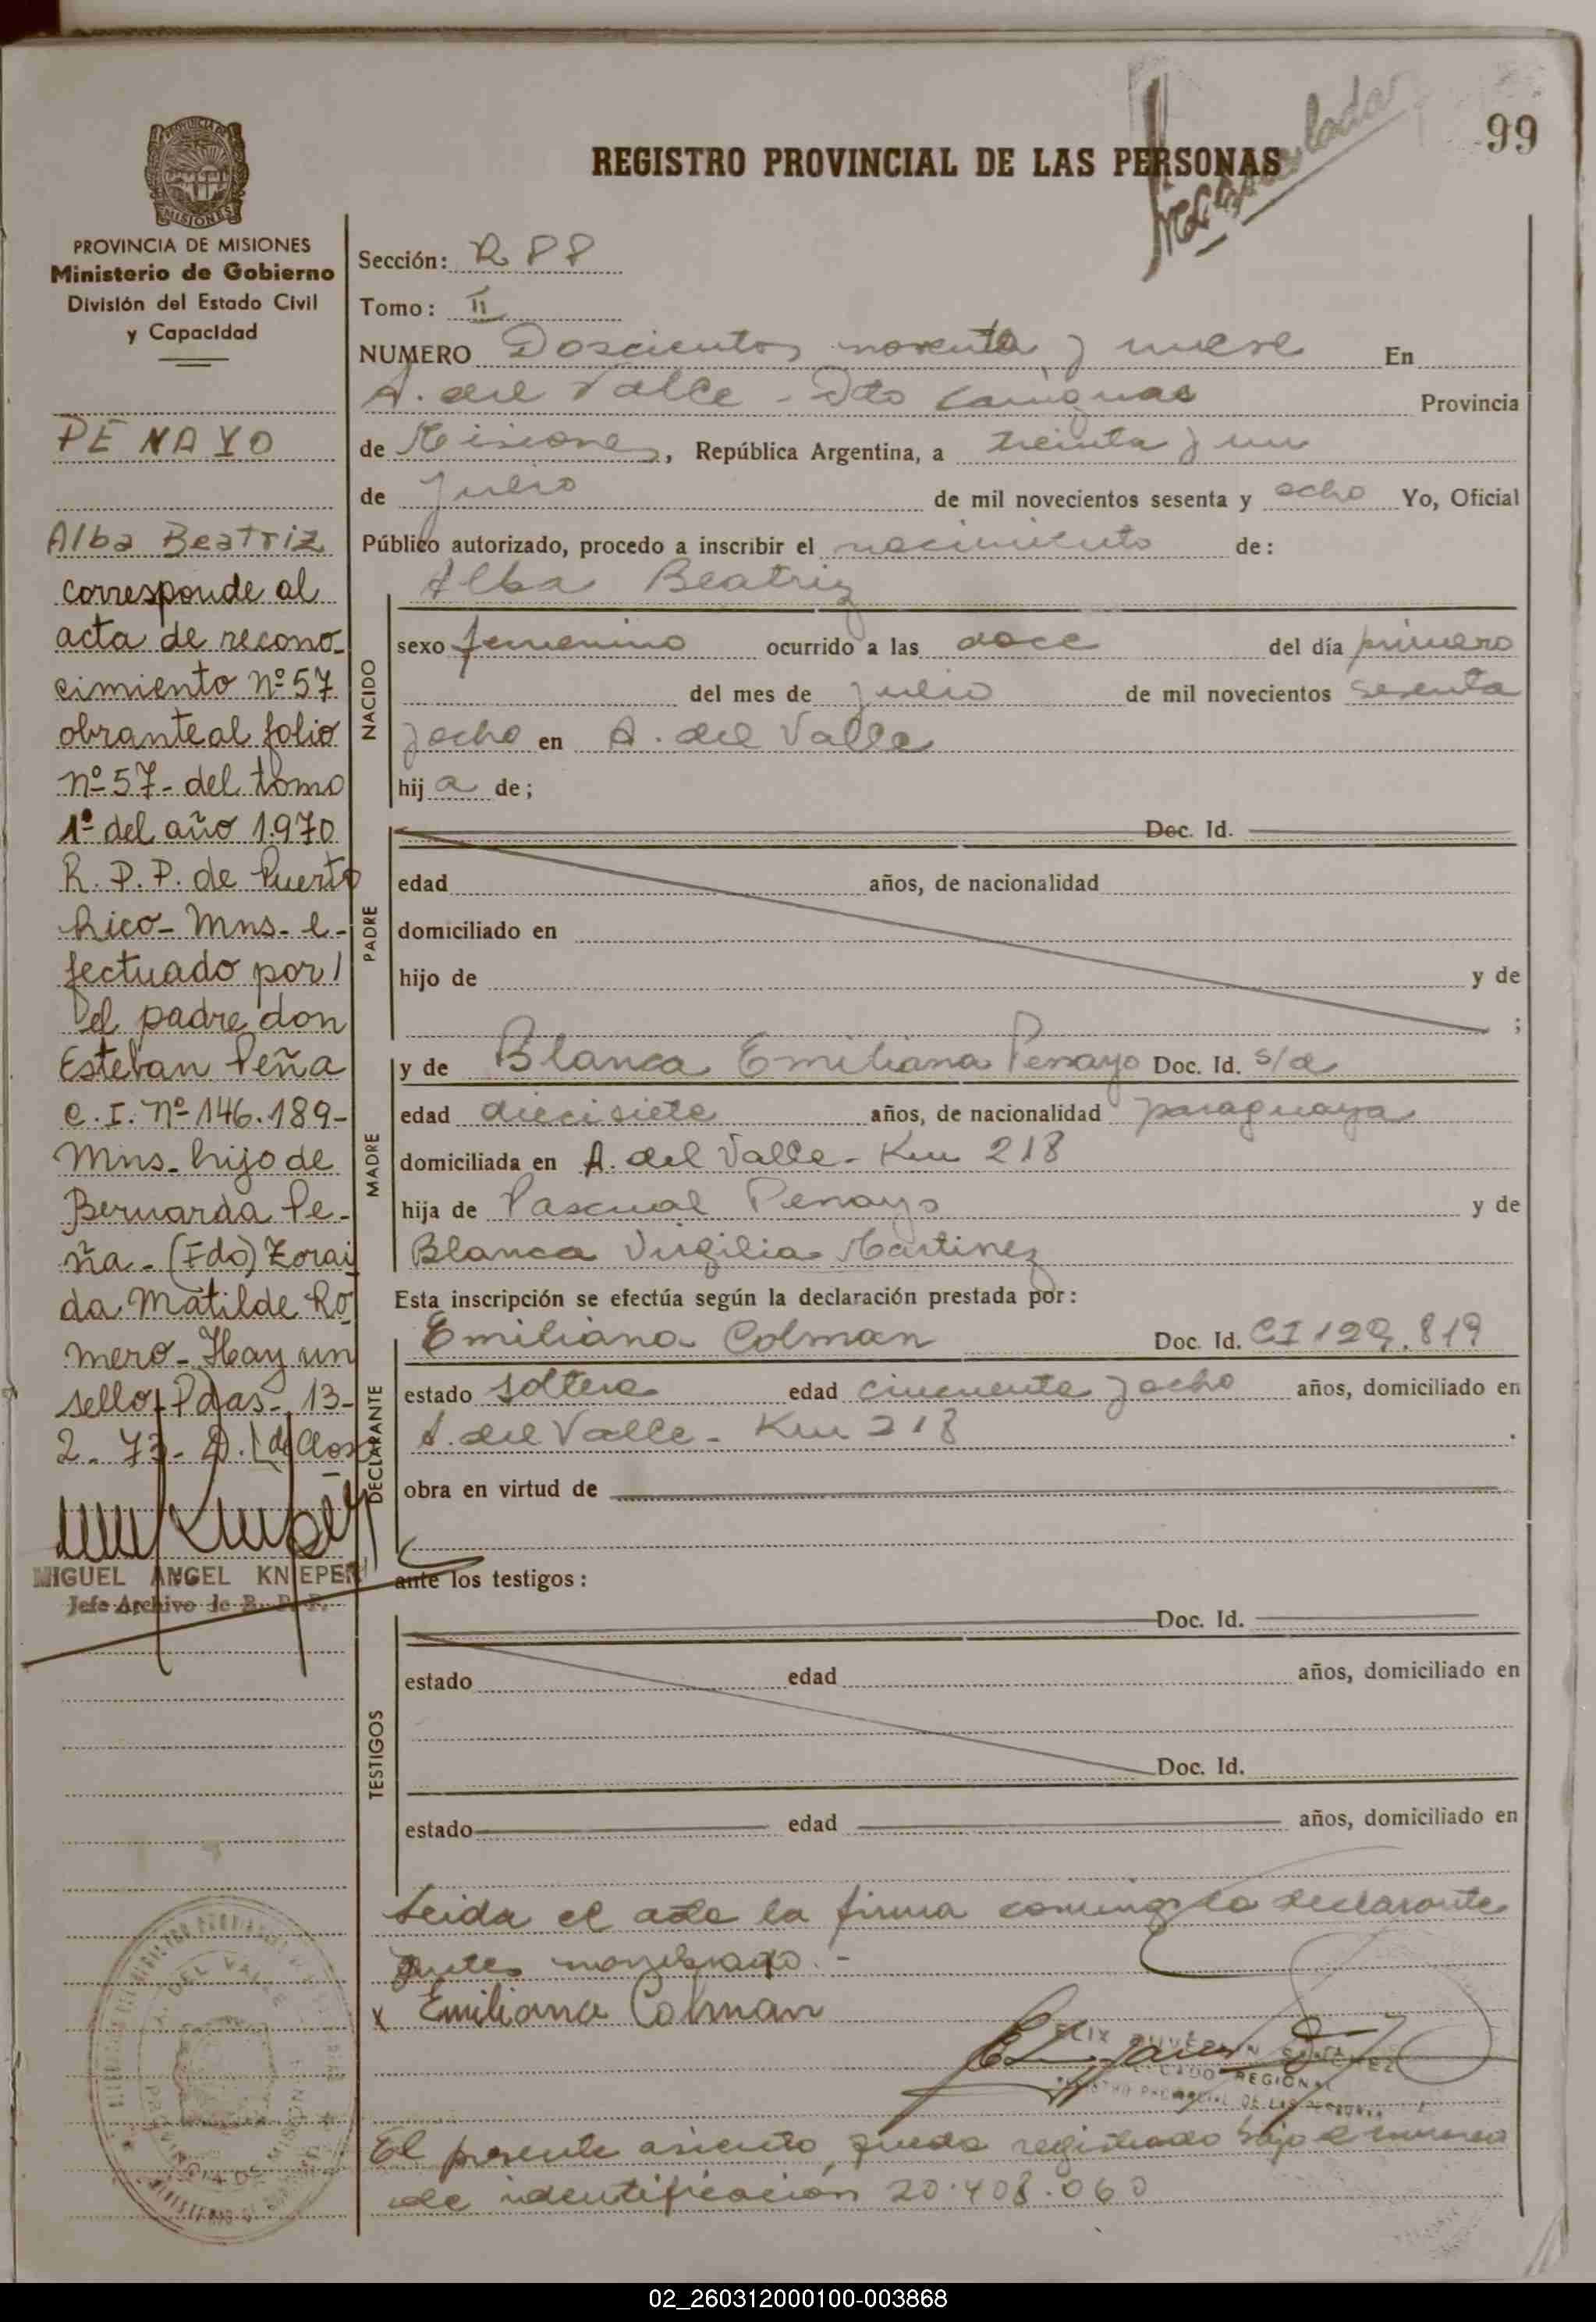 99
REGISTRO PROVINCIAL DE LAS PERSONAS
PROVINCIA DE MISIONES
Ministerio de Gobierno
División del Estado Civil
y Capacidad
PENAYO
Alba Beatriz
corresponde al
acta de recono-
cimiento nº 57
obrante al folio
nº 57- del tomo
1º del año 1.970
R. P. P. de Puerto
Rico- Mns- e-
fectuado por
el padre don
Esteban Peña
C. I. nº 146.189-
Mns- hijo de
Bernarda Pe-
ña - (Fdo) Zorai
da Matilde Ro
mero- Hay un
sello, Pdas- 13-
2- 73-
MIGUEL ANGEL KNIEPER
Jefe Archivo de R. P. P.
Sección: R 88
Tomo: II
NUMERO Doscientos noventa y nueve En
A. del Valle - Dto Cainguas Provincia
de Misiones, República Argentina, a treinta y un
de julio de mil novecientos sesenta y ocho Yo, Oficial
Público autorizado, procedo a inscribir el nacimiento de:
Alba Beatriz
NACIDO
sexo femenino ocurrido a las doce del día primero
del mes de julio de mil novecientos sesenta
y ocho en A. del Valle
hij a de;
PADRE
Doc. Id.
edad años, de nacionalidad
domiciliado en
hijo de y de
;
MADRE
y de Blanca Emiliana Penayo Doc. Id. s/d
edad diecisiete años, de nacionalidad paraguaya
domiciliada en A. del Valle - Km 218
hija de Pascual Penayo y de
Blanca Virgilia Martinez
Esta inscripción se efectúa según la declaración prestada por:
DECLARANTE
Emiliana Colman Doc. Id. CI 129.819
estado soltera edad cincuenta y ocho años, domiciliado en
A. del Valle - Km 218
obra en virtud de
ante los testigos:
TESTIGOS
Doc. Id.
estado edad años, domiciliado en
Doc. Id.
estado edad años, domiciliado en
Leida el acta la firma conmigo la declarante
antes nombrado.-
x Emiliana Colman
REGIONAL
El presente asiento, queda registrado bajo el numero
de identificación 20.408.060
02_260312000100-003868